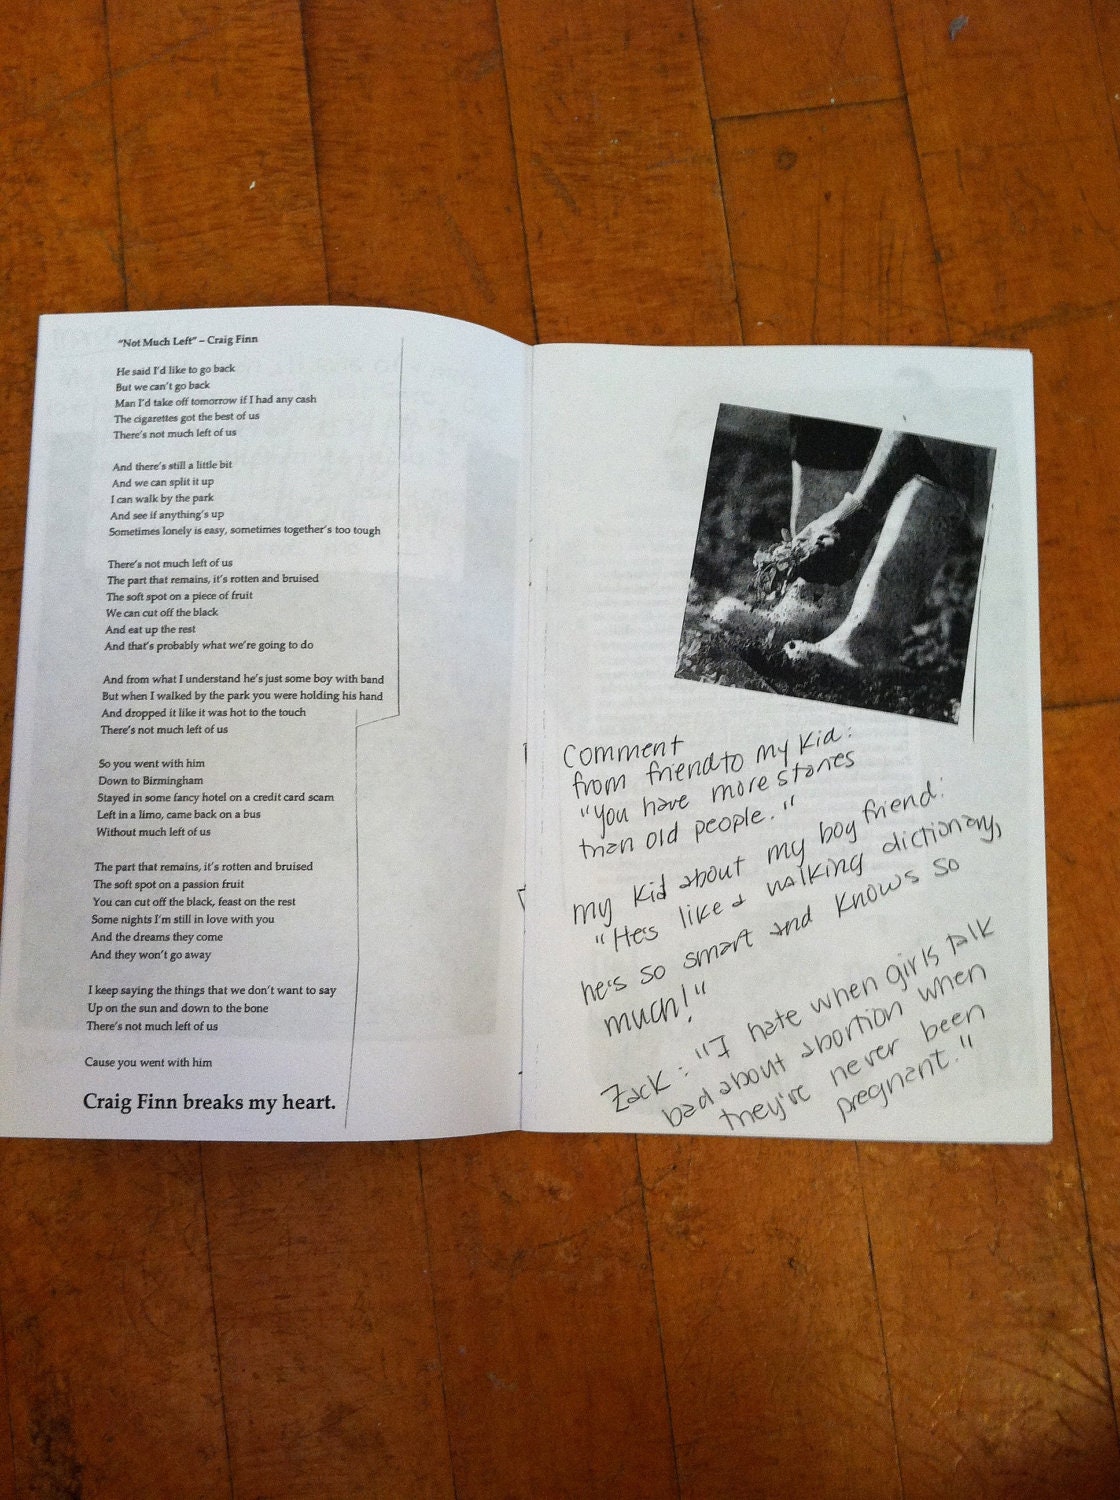 "Not Much Left" – Craig Finn
He said I'd like to go back
But we can't go back
Man I'd take off tomorrow if I had any cash
The cigarettes got the best of us
There's not much left of us
And there's still a little bit
And we can split it up
I can walk by the park
And see if anything's up
Sometimes lonely is easy, sometimes together's too tough
There's not much left of us
The part that remains, it's rotten and bruised
The soft spot on a piece of fruit
We can cut off the black
And eat up the rest
And that's probably what we're going to do
And from what I understand he's just some boy with band
But when I walked by the park you were holding his hand
And dropped it like it was hot to the touch
There's not much left of us
So you went with him
Down to Birmingham
Stayed in some fancy hotel on a credit card scam
Left in a limo, came back on a bus
Without much left of us
The part that remains, it's rotten and bruised
The soft spot on a passion fruit
You can cut off the black, feast on the rest
Some nights I'm still in love with you
And the dreams they come
And they won't go away
I keep saying the things that we don't want to say
Up on the sun and down to the bone
There's not much left of us
Cause you went with him
Craig Finn breaks my heart.
Comment
from friend to my kid:
"You have more stories
than old people."
my kid about my boyfriend:
"He's like a walking dictionary,
he's so smart and knows so
much!"
Zack: "I hate when girls talk
bad about abortion when
they're never been
pregnant."